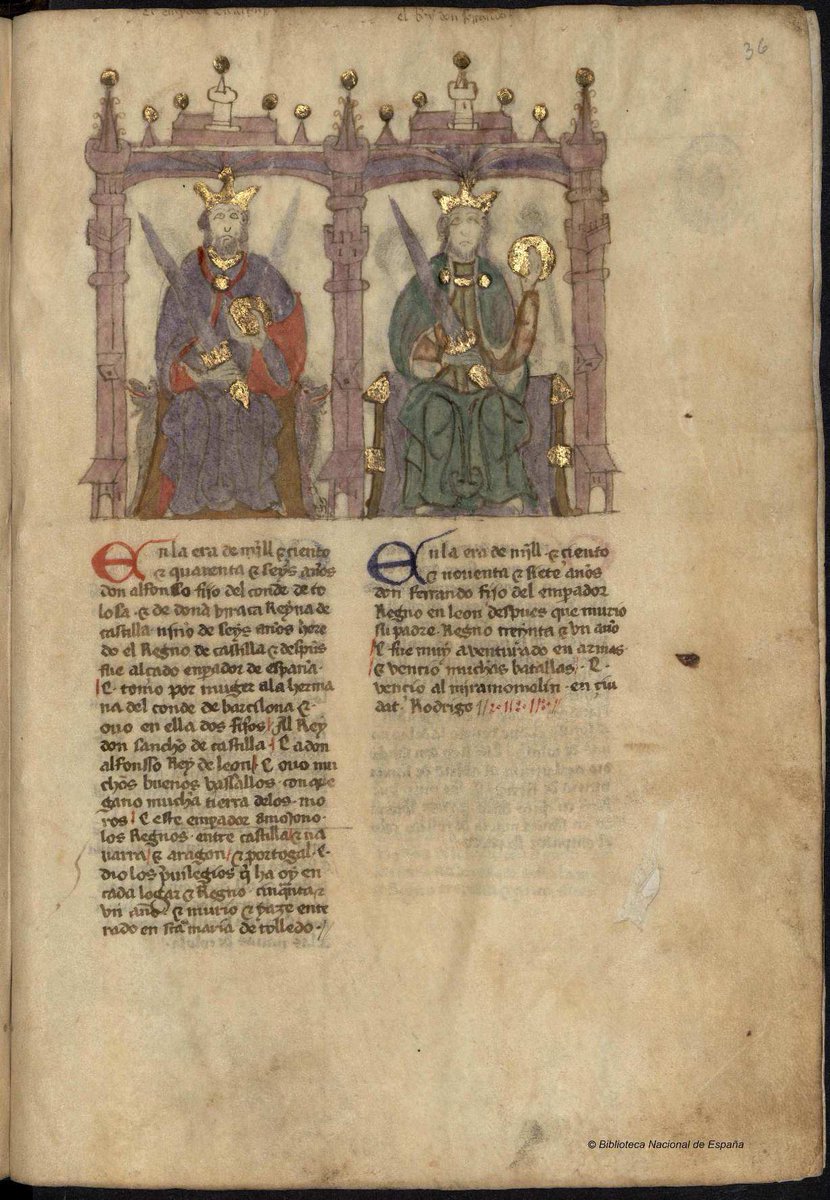 el enperador don alfonso
el Rey don fernando
36
En la era de mjll ⁊ ciento
⁊ quarenta ⁊ seys años
don alfonso fijo del conde de to
losa · ⁊ de dona vrraca Reyna de
castilla njño de seys años here
do el Regno de castilla ⁊ despues
fue alçado enperador de españa ·
⁊ tomo por muger ala herma
na del conde de barçelona ⁊ ·
ouo en ella dos fijos Al Rey
don sancho de castilla · ⁊ a don
alfonsso Rey de leon ⁊ ouo mu
chos buenos vassallos · con que
gano mucha tierra delos · mo
ros ⁊ este enperador amojono ·
los Regnos · entre castilla ⁊ na
uarra ⁊ aragon ⁊ portogal ⁊ ·
dio los preuilegios q̃ ha oy en
cada logar ⁊ Regno · cinquẽta ⁊
vn año ⁊ murio ⁊ yaze ente
rado en stã maria de tolledo ·//
En la era de mjll · ⁊ ciento
⁊ nouenta ⁊ siete años
don ferrando fijo del enpador
Regno en leon despues que murio
su padre · Regno treynta ⁊ vn año
⁊ fue muy aventurado en armas ·
⁊ vencio muchas batallas · ⁊ ·
vencio al mjramomolin · en çiu
dat · Rodrigo //
© Biblioteca Nacional de España